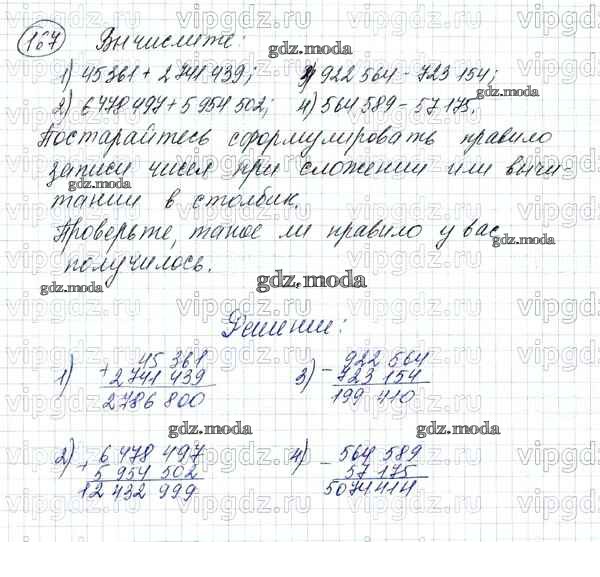 167 Вычислите:
1) 45 361 + 2 741 439; 3) 922 564 - 723 154;
2) 6 478 497 + 5 954 502; 4) 564 589 - 57 175.
Постарайтесь сформулировать правило
записи чисел при сложении или вычи-
тании в столбик.
Проверьте, такое ли правило у вас
получилось.
gdz.moda
Решение:
1) + 45 361
2 741 439
2 786 800
3) - 922 564
723 154
199 410
gdz.moda
2) + 6 478 497
5 954 502
12 432 999
4) - 564 589
57 175
5074 414
vipgdz.ru